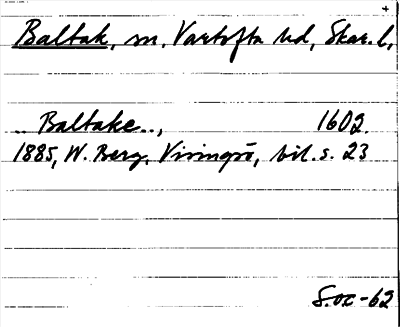 +
Baltak, sn. Vartofta hd, Skar. l,
.. Baltake.., 1602.
1885, W. Berg, Visingsö, bil. s. 23
S.ox-62